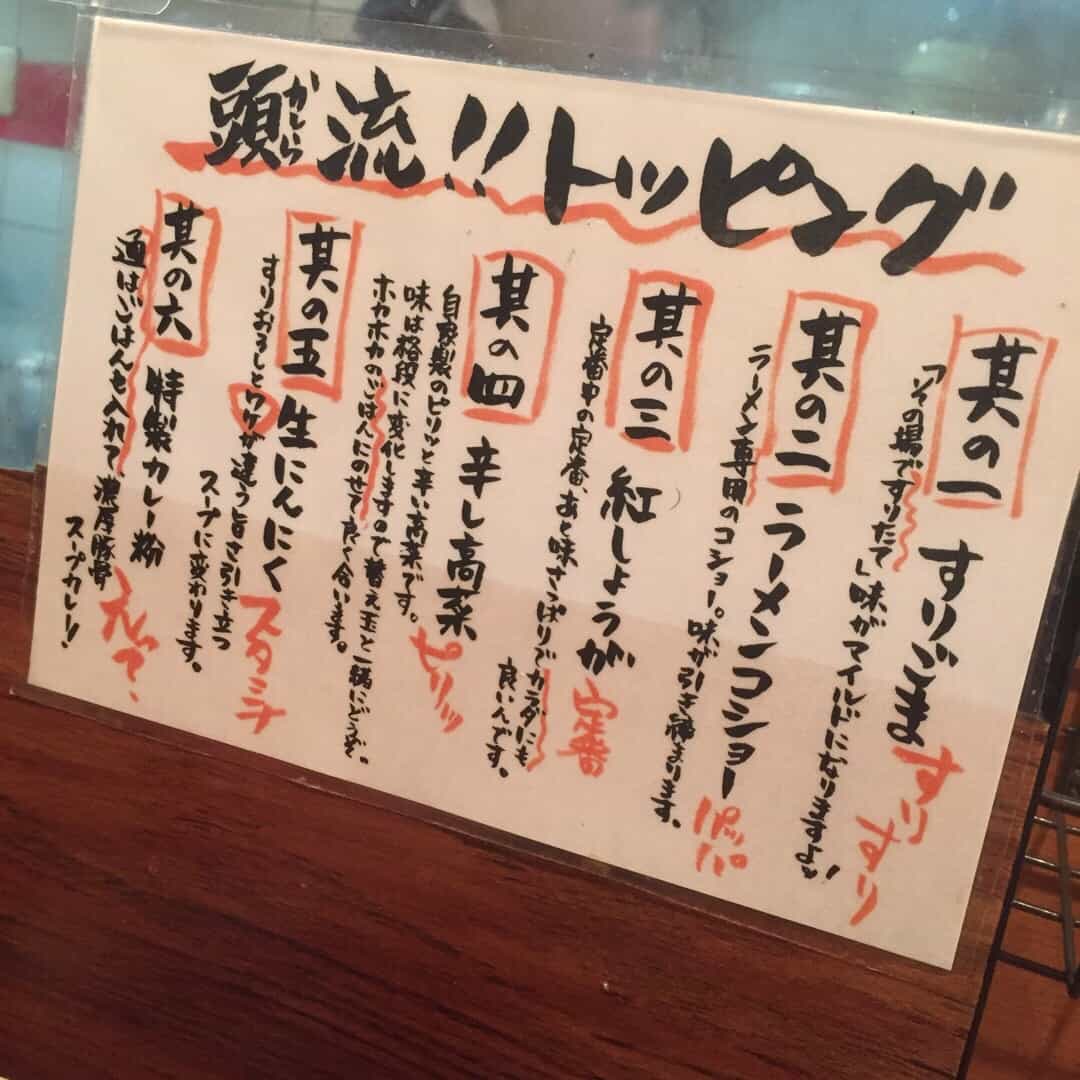 頭流!!トッピング
かしら
其の一 すりごま
「その場ですりたて」味がマイルドになりますよ!
すりすり
其の二 ラーメンコショー
ラーメン専用のコショー。味が引き締まります。
パッパ
其の三 紅しょうが
定番中の定番、あと味さっぱりでカラダにも
良いんです。
定番
其の四 辛し高菜
自家製のピリッと辛い高菜です。
味は格段に変化しますので替え玉と一緒にどうぞ。
ホカホカのごはんにのせて良く合います。
ピリッ
其の五 生にんにく
すりおろしとワケが違う旨さ引き立つ
スープに変わります。
スタミナ
其の六 特製カレー粉
通はごはんも入れて濃厚豚骨
スープカレー!